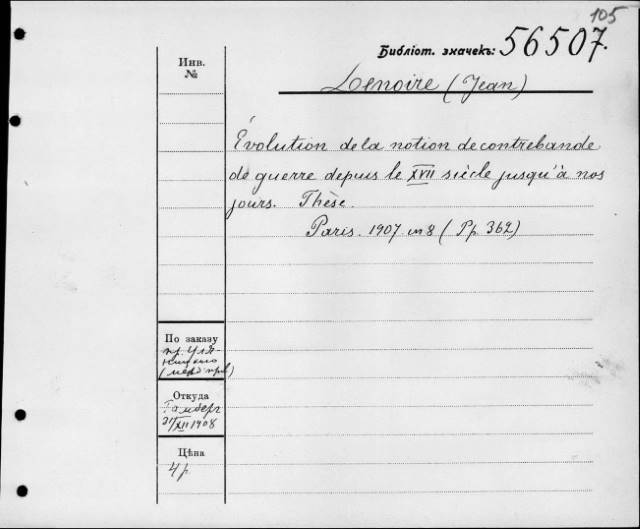 105
Библіот. значекъ: 56507.
Инв.
№
Lenoire (Jean)
Évolution de la notion de contrebande
de guerre depuis le XVII siècle jusqu'à nos
jours. Thèse.
Paris. 1907 in 8 (Pp. 362)
По заказу
пр. Уля-
ницкаго
Откуда
Гамберг
21/XII 1908
Цѣна
4 р